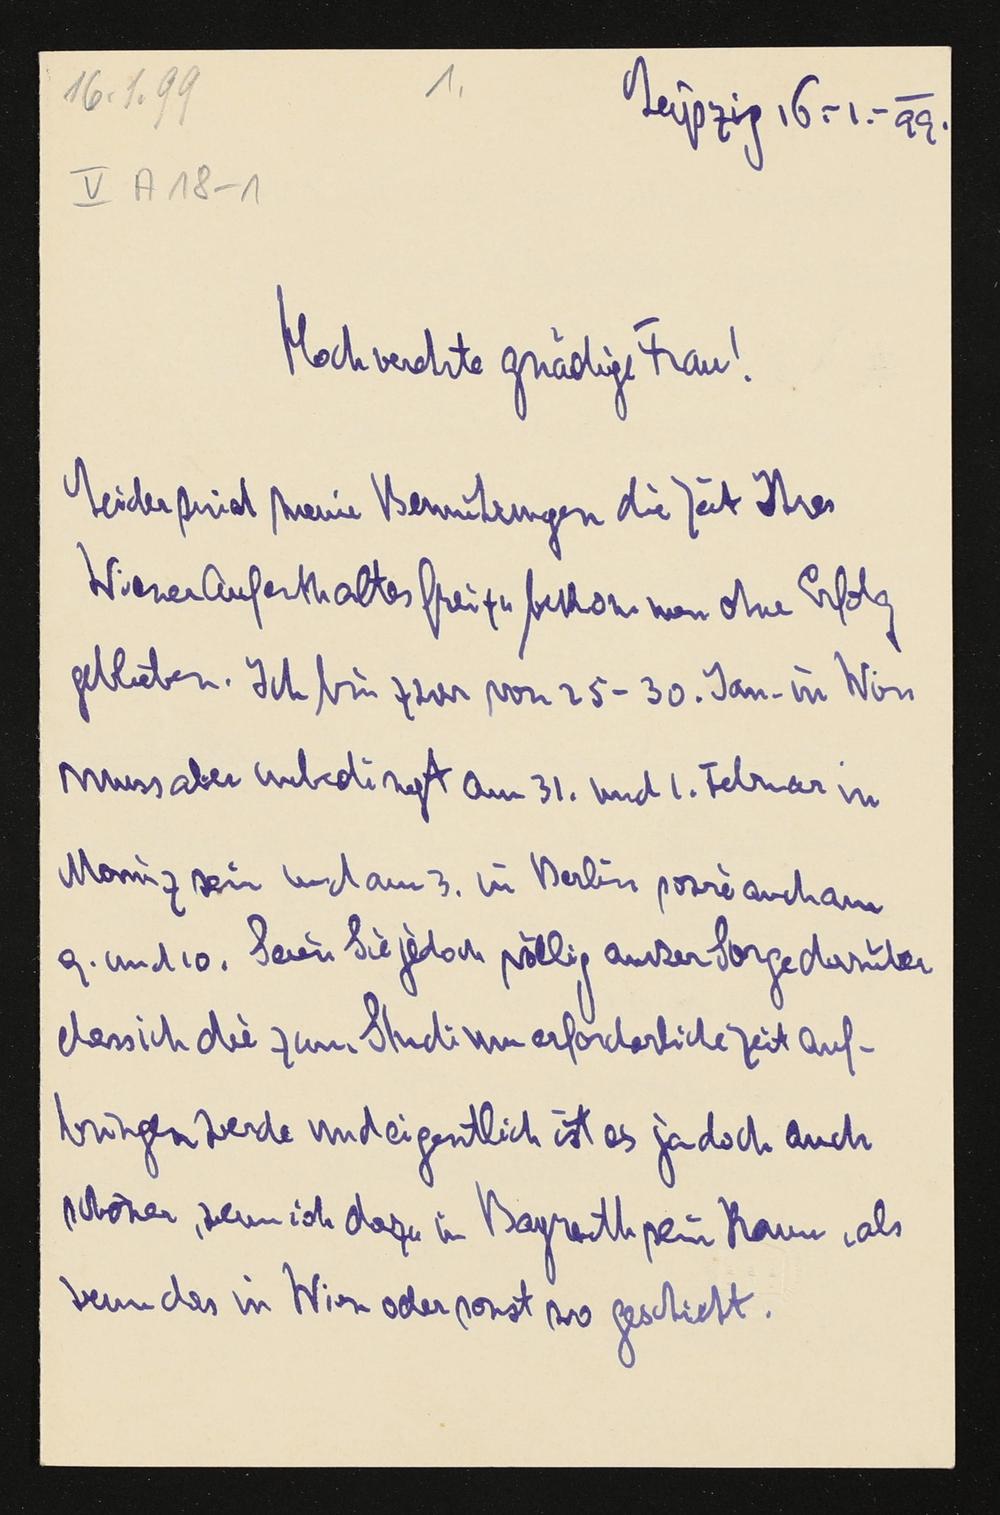 16.1.99
1.
Leipzig 16.-1.-99.
V A 18-1
Hochverehrte gnädige Frau!
Leider sind meine Bemühungen die Zeit Ihres
Wiener Aufenthaltes frei zu bekommen ohne Erfolg
geblieben. Ich bin zwar von 25-30. Jan. in Wien
muss aber unbedingt am 31. und 1. Februar in
Mainz sein und am 3. in Berlin sowie auch am
9. und 10. Seien Sie jedoch völlig ausser Sorge darüber
dass ich die zum Studium erforderliche Zeit auf-
bringen werde und eigentlich ist es ja doch auch
schöner, wenn ich dazu in Bayreuth sein kann, als
wenn das in Wien oder sonst wo geschieht.